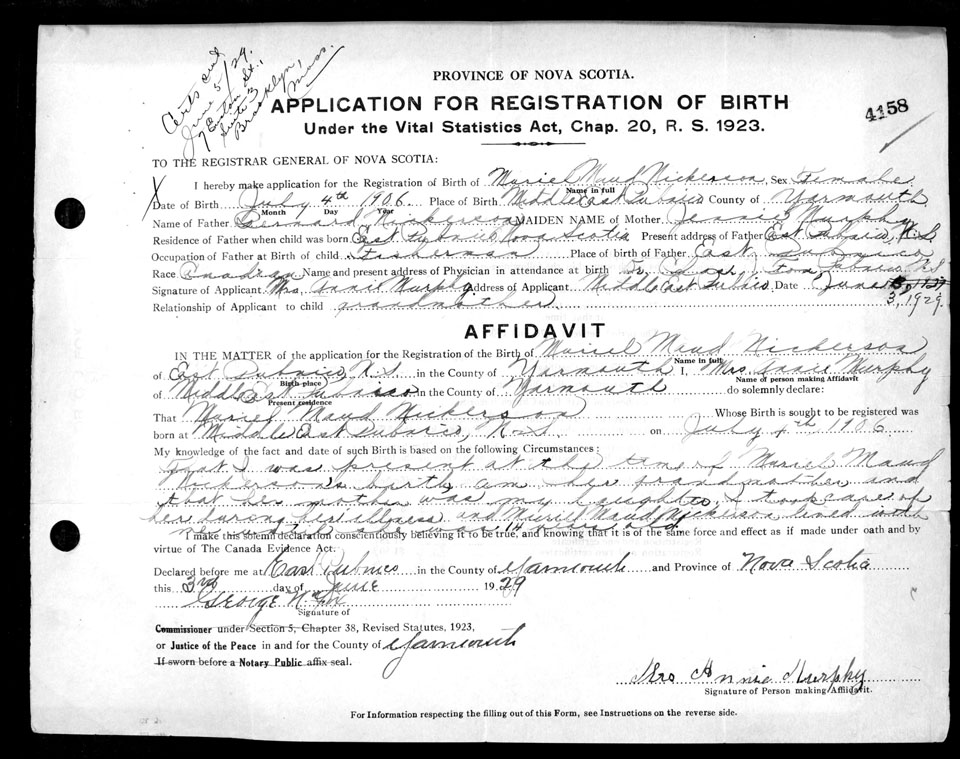 Certs
June 5/29.
7
Brooklyn,
Mass.
PROVINCE OF NOVA SCOTIA.
APPLICATION FOR REGISTRATION OF BIRTH
4158
Under the Vital Statistics Act, Chap. 20, R. S. 1923.
TO THE REGISTRAR GENERAL OF NOVA SCOTIA:
X
I hereby make application for the Registration of Birth of Muriel Maud Nickerson, Sex Female
Name in full
Date of Birth July 4th 1906. Place of Birth Middle East Pubnico County of Yarmouth
Month Day Year
Name of Father Bernard Nickerson MAIDEN NAME of Mother Jennie Murphy
Residence of Father when child was born East Pubnico Nova Scotia Present address of Father East Pubnico, N.S.
Occupation of Father at Birth of child Fisherman Place of birth of Father East Pubnico
Race Canadian Name and present address of Physician in attendance at birth Dr. Pubnico N S
Signature of Applicant Mrs. Annie Murphy address of Applicant Middle East Pubnico Date June
3, 1929.
Relationship of Applicant to child grandmother
AFFIDAVIT
IN THE MATTER of the application for the Registration of the Birth of Muriel Maud Nickerson
Name in full
of East Pubnico N.S. in the County of Yarmouth I, Mrs. Annie Murphy
Birth-place Name of person making Affidavit
of Middle East Pubnico in the County of Yarmouth do solemnly declare:
Present residence
That Muriel Maud Nickerson Whose Birth is sought to be registered was
born at Middle East Pubnico, N.S. on July 4th 1906
My knowledge of the fact and date of such Birth is based on the following Circumstances:
That I was present at the time of Muriel Maud
Nickerson's birth am her grandmother and
that her mother was my daughter I took care of
her during her illness and Muriel Maud Nickerson lived with
me until she was 14 years old
I make this solemn declaration conscientiously believing it to be true, and knowing that it is of the same force and effect as if made under oath and by
virtue of The Canada Evidence Act.
Declared before me at East Pubnico in the County of Yarmouth and Province of Nova Scotia
this 3rd day of June 1929
George N.
Signature of
Commissioner under Section 5, Chapter 38, Revised Statutes, 1923,
or Justice of the Peace in and for the County of Yarmouth
If sworn before a Notary Public affix seal.
Mrs Annie Murphy
Signature of Person making Affidavit.
For Information respecting the filling out of this Form, see Instructions on the reverse side.